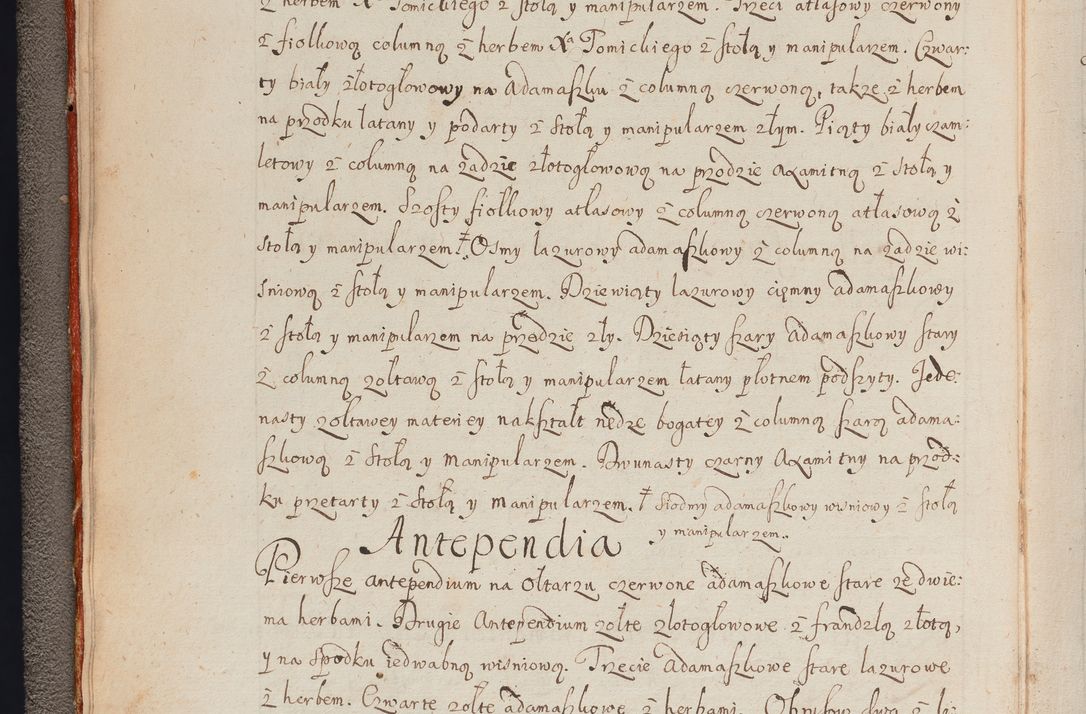 z herbem Xa Tomickiego z stołą y manipularzem. Trzeci atłasowy czerwony
z fiołkową columną z herbem Xa Tomickiego z stołą y manipularzem. Czwar-
ty biały złotogłowowy na Adamaszku z columną czerwoną, także z herbem
na przodku łatany y podarty z stołą y manipularzem złym. Piąty biały czam:
letowy z columną na zadzie złotogłowową na przodzie axamitną z stołą y
manipularzem. Szosty fiołkowy atłasowy z columną czerwoną atłasową z
stołą y manipularzem.‡ Osmy lazurowy adamaszkowy z columną na zadzie wi:
śniową z stołą y manipularzem. Dziewiąty lazurowy ciemny adamaszkowy
z stołą y manipularzem na przodzie zły. Dziesiąty szary Adamaszkowy stary
z columną zołtawą z stołą y manipularzem łatany płotnem podszyty. Jede:
nasty zołtawey materiey nakształt nędze bogatey z columną szarą adama:
szkową z stołą y manipularzem. Dwunasty czarny Axamitny na przod:
ku przetarty z stołą y manipularzem. ‡ Siodmy adamaszkowy wiśniowy z stołą
y manipularzem.
Antependia
Pierwsze antependium na ołtarzu czerwone adamaszkowe stare ze dwie:
ma herbami. Drugie Antependium zołte złotogłowowe z frandzlą złotą,
y na spodku iedwabną wiśniową. Trzecie Adamaszkowe stare lazurowe
z herbem. Czwarte zołte adamaszkowe z herbami.